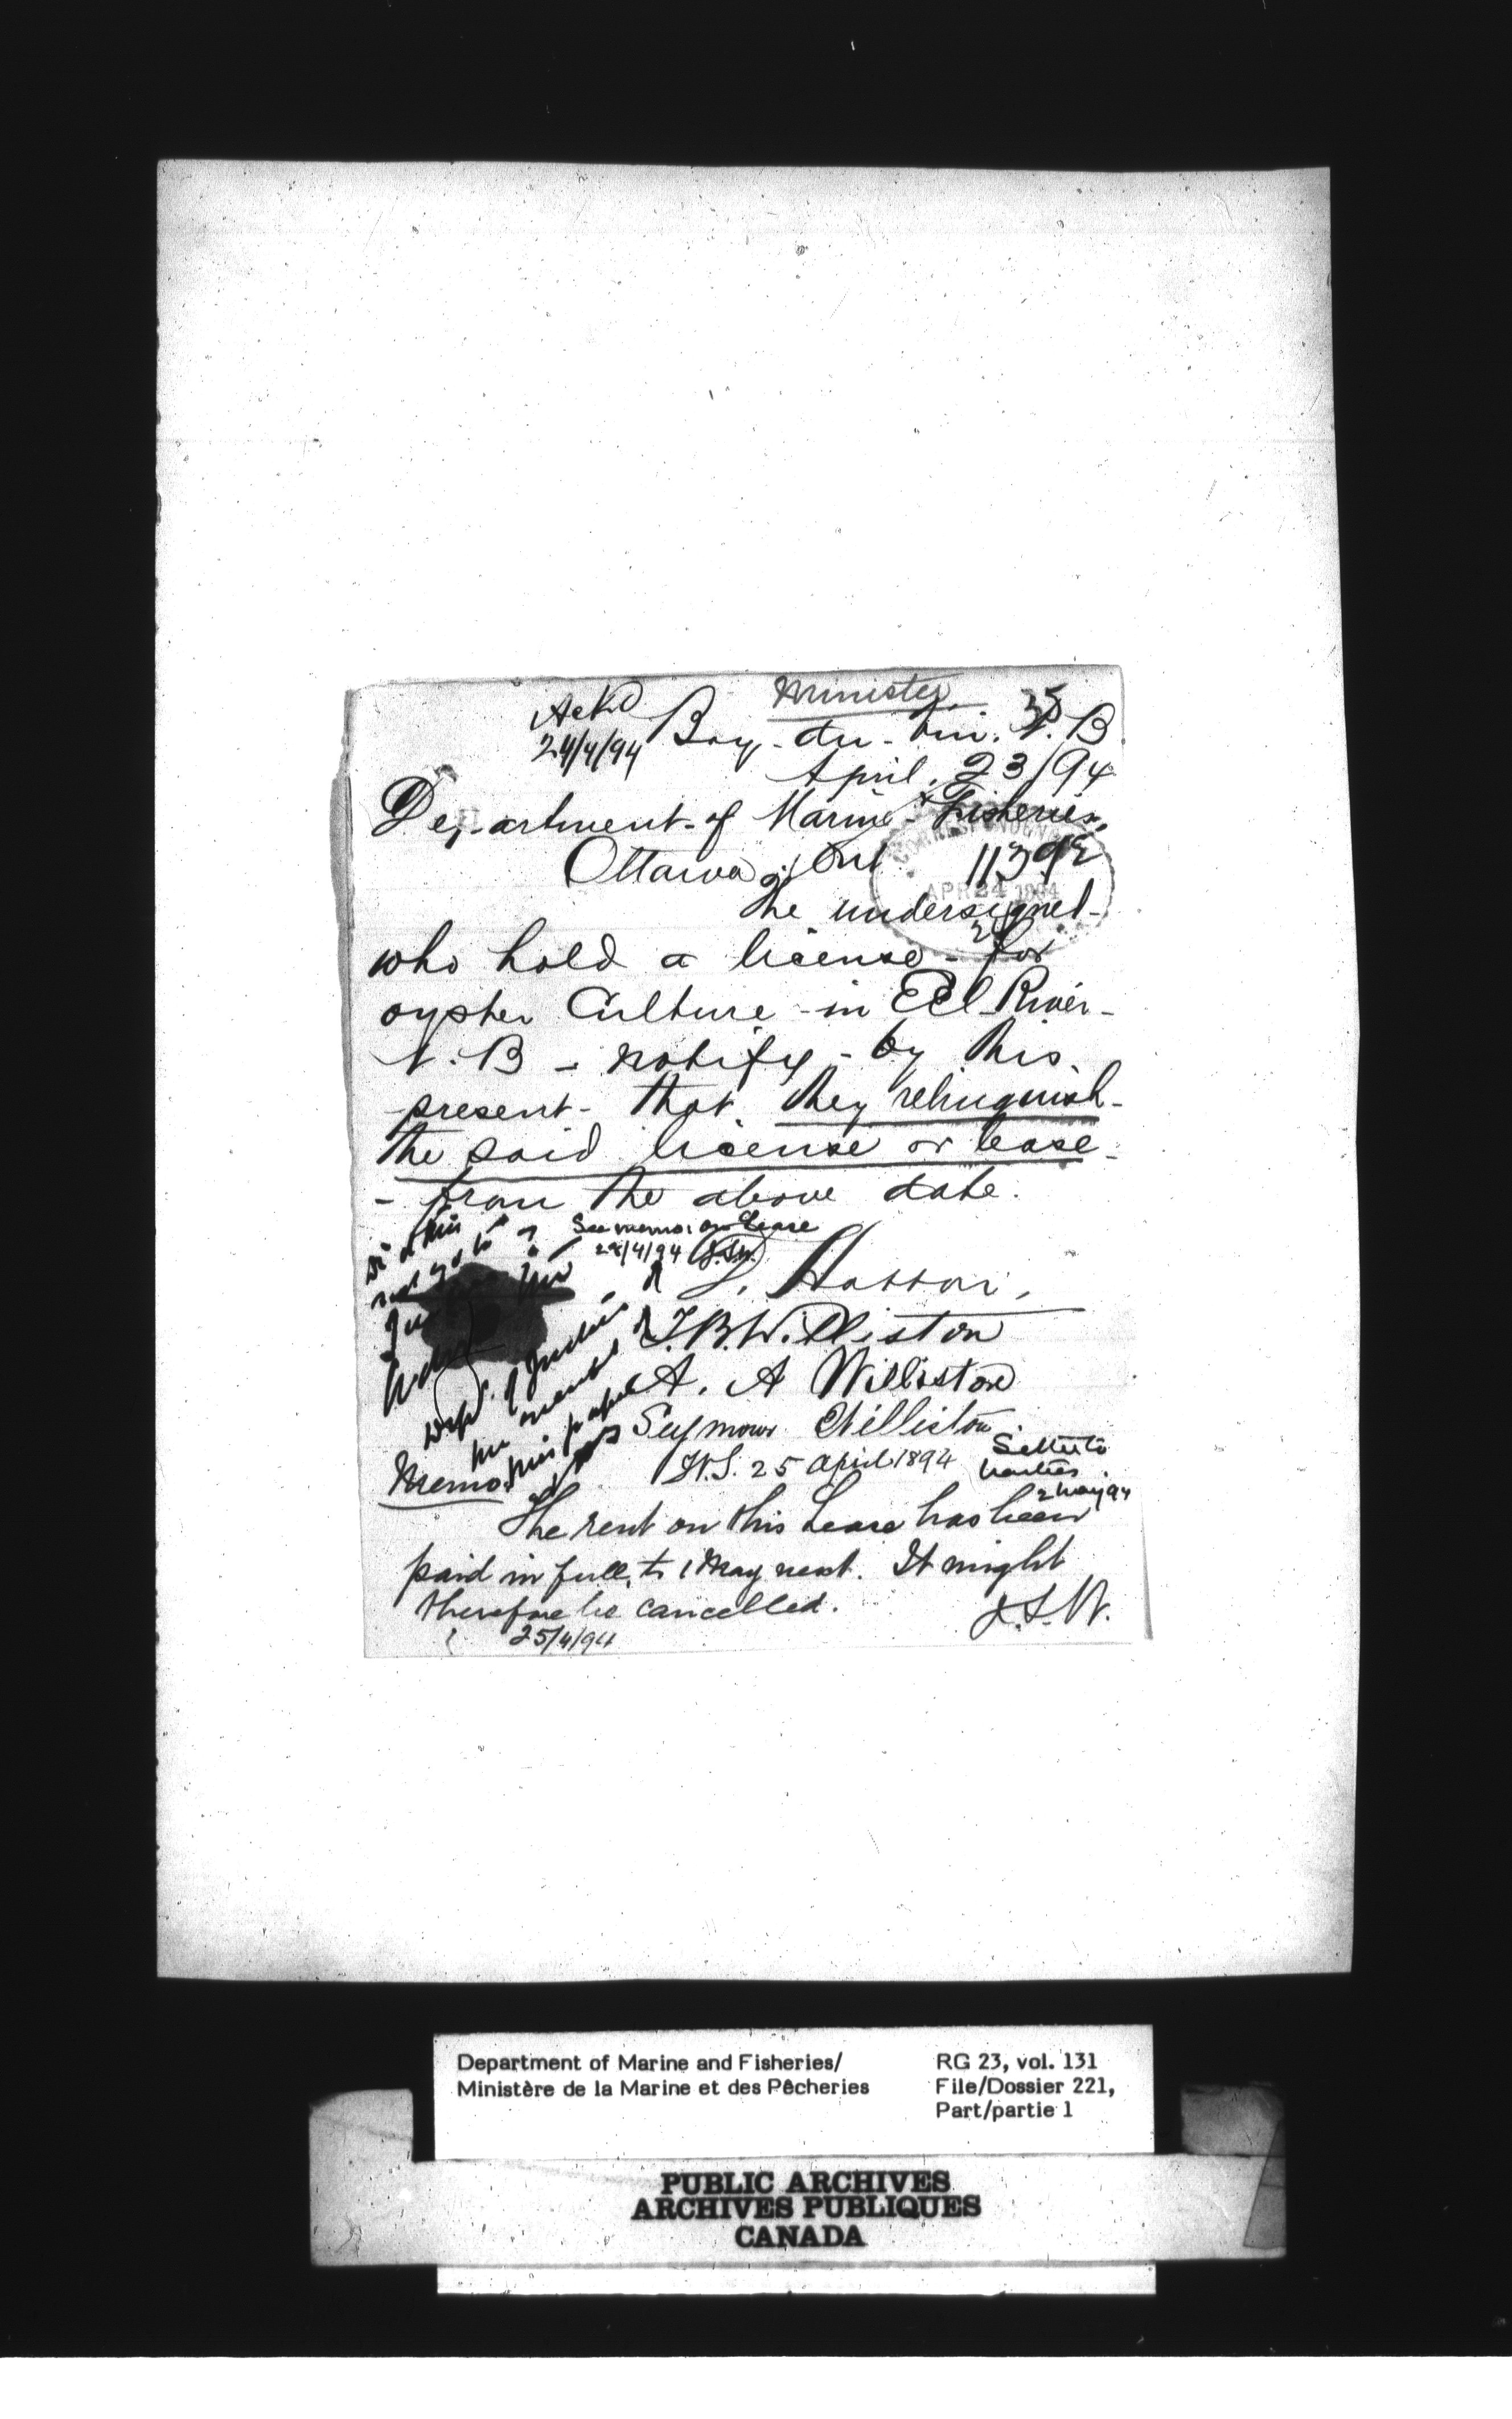 Minister
Ackd
24/4/94
35
Bay-du-Vin. N.B
April. 23/94
Department-of Marine & Fisheries,
Ottawa, Ont
CORRESPONDENCE
APR 24 1894
The undersigned-
who hold a license - for
oyster Culture - in Eel River -
N.B - notify - by this
present - that they relinquish -
the said license or lease -
- from the above date.
See memo: on Lease
28/4/94
T.B. Williston
A. A Williston
Seymour Williston
25 April 1894
2 May 94
Memo.
The rent on this Lease has been
paid in full, to 1 May next. It might
therefore be cancelled.
25/4/94
Department of Marine and Fisheries/
Ministère de la Marine et des Pêcheries
RG 23, vol. 131
File/Dossier 221,
Part/partie 1
PUBLIC ARCHIVES
ARCHIVES PUBLIQUES
CANADA